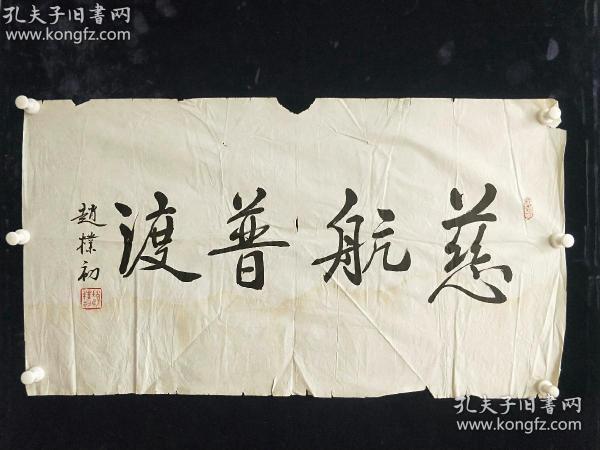 孔夫子旧书网
www.kongfz.com
慈航普渡
趙樸初
孔夫子旧书网
www.kongfz.com